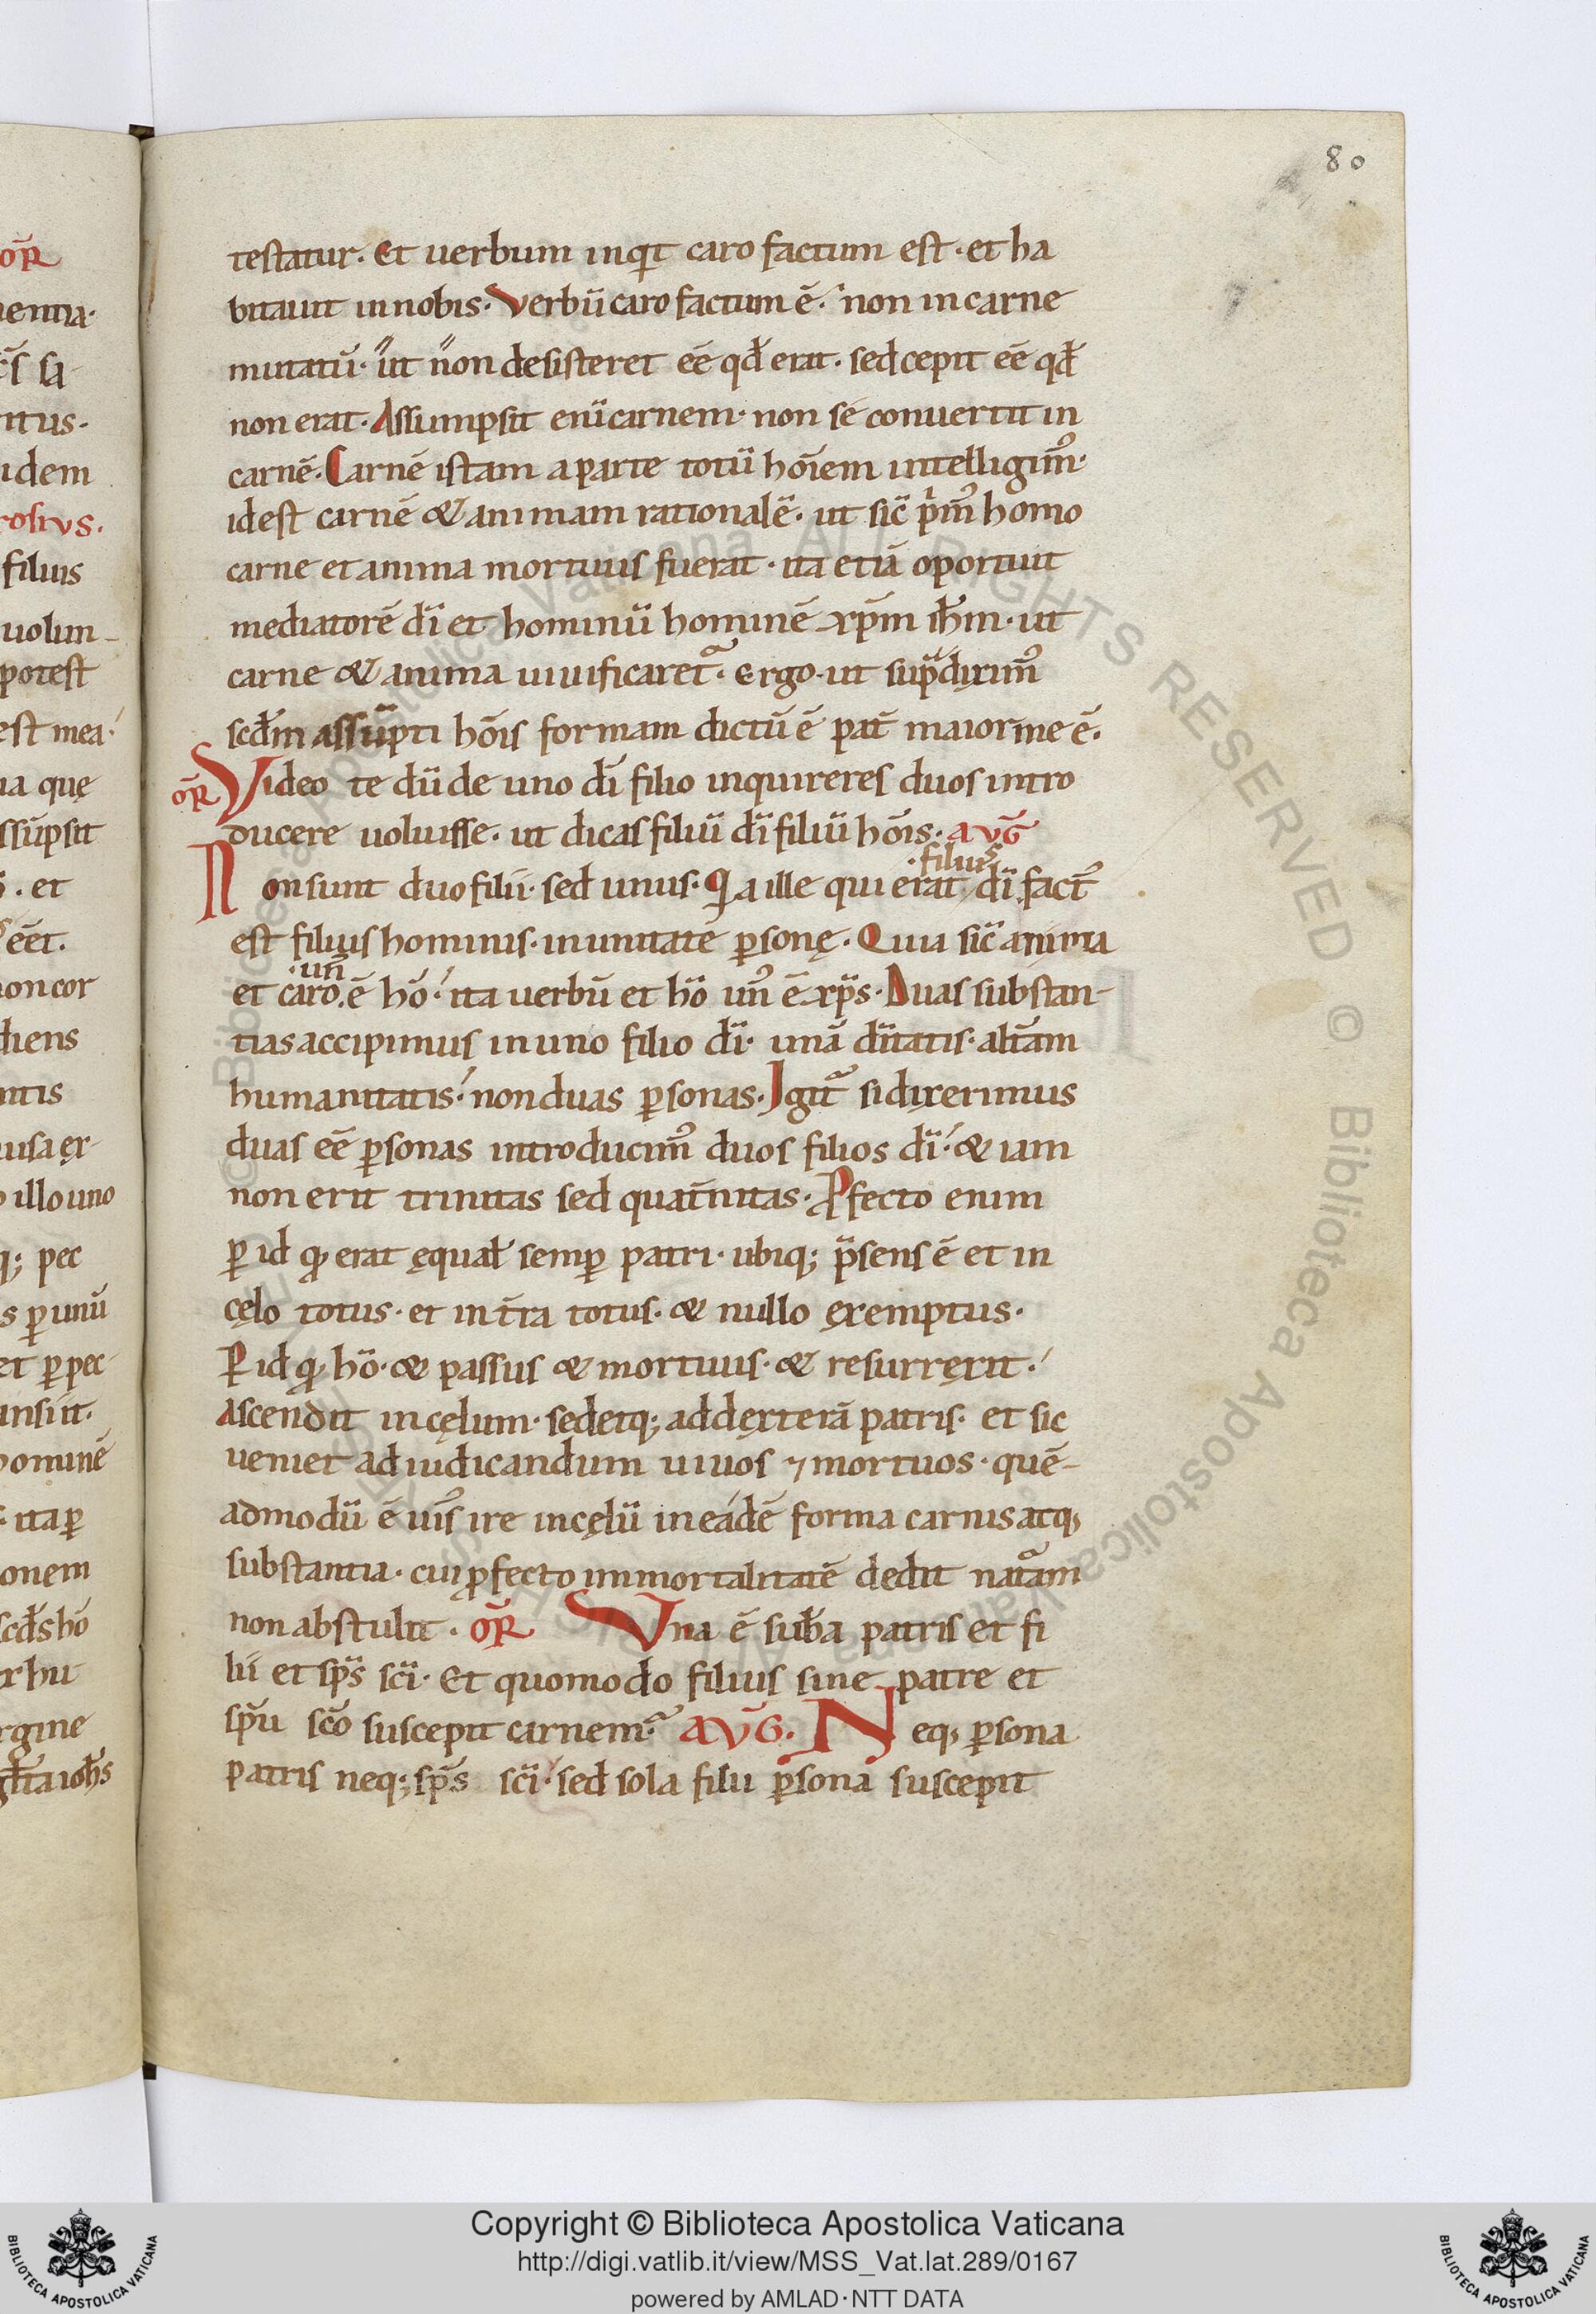 80
testatur. Et uerbum inq̇t caro factum est. et ha
bitauit in nobis. Verbū caro factum ē. non in carne
mutatū. ut non desisteret eē qd̄ erat. sed cepit eē qd̄
non erat. Assumpsit enī carnem. non se conuertit in
carnē. Carnē istam a parte totū hoīem intelligim᷒.
idest carnē & animam rationalē. ut sic̄ prim᷒ homo
carne et anima mortuus fuerat. ita etiā oportuit
mediatorē dī et hominū hominē xp̄m ih̄m. ut
carne & anima uiuificaret᷑. Ergo ut sup̄ diximꝰ
scd̄m assūpti hōis formam dictū ē pat̄ maior me ē.
OR̄ Video te dū de uno dī filio inquireres duos intro
ducere uoluisse. ut dicas filiū dī filiū hōis. AVḠ
filius
Non sunt duo filii. sed unus. Qa ille qui erat dī factꝰ
est filius hominis. in unitate ꝑsonę. Quia sic̄ anima
unꝰ
et caro ē hō. ita uerbū et hō unꝰ ē xp̄s. Duas substan-
tias accipimus in uno filio dī. unā dīitatis. alt̄am
humanitatis. non duas ꝑsonas. Igit᷑ si dixerimus
duas eē ꝑsonas introducimꝰ duos filios dī. & iam
non erit trinitas sed quat̄nitas. Ꝓfecto enim
ꝑ id qđ erat ęqual̄ semꝑ patri. ubiq; p̄sens ē et in
cęlo totus. et in t̄ra totus. & nullo exemptus.
Ꝑ id qđ hō. & passus & mortuus. & resurrexit.
Ascendit in cęlum. sedetq; ad dexterā patris. et sic
ueniet ad iudicandum uiuos ⁊ mortuos. quē-
admodū ē uisꝰ ire in cęlū in eadē forma carnis atq;
substantia. cui ꝓfecto immortalitatē dedit nat᷑am
non abstulit. OR̄ Vna ē sub̄a patris et fi
lii et sp̄s sc̄i. Et quomodo filius sine patre et
sp̄u sc̄o suscepit carnem? AVḠ. Neq; ꝑsona
patris neq; sp̄s sc̄i. sed sola filii ꝑsona suscepit
OR̄
uolun-
potest
est mea.
idem
filius
ia quę
ssūpsit
. et
eēt.
hiens
illo uno
q; pec
s ꝑ unū
et ꝑ pec
onem
rgine
Copyright © Biblioteca Apostolica Vaticana
http://digi.vatlib.it/view/MSS_Vat.lat.289/0167
powered by AMLAD·NTT DATA
BIBLIOTECA APOSTOLICA VATICANA
BIBLIOTECA APOSTOLICA VATICANA